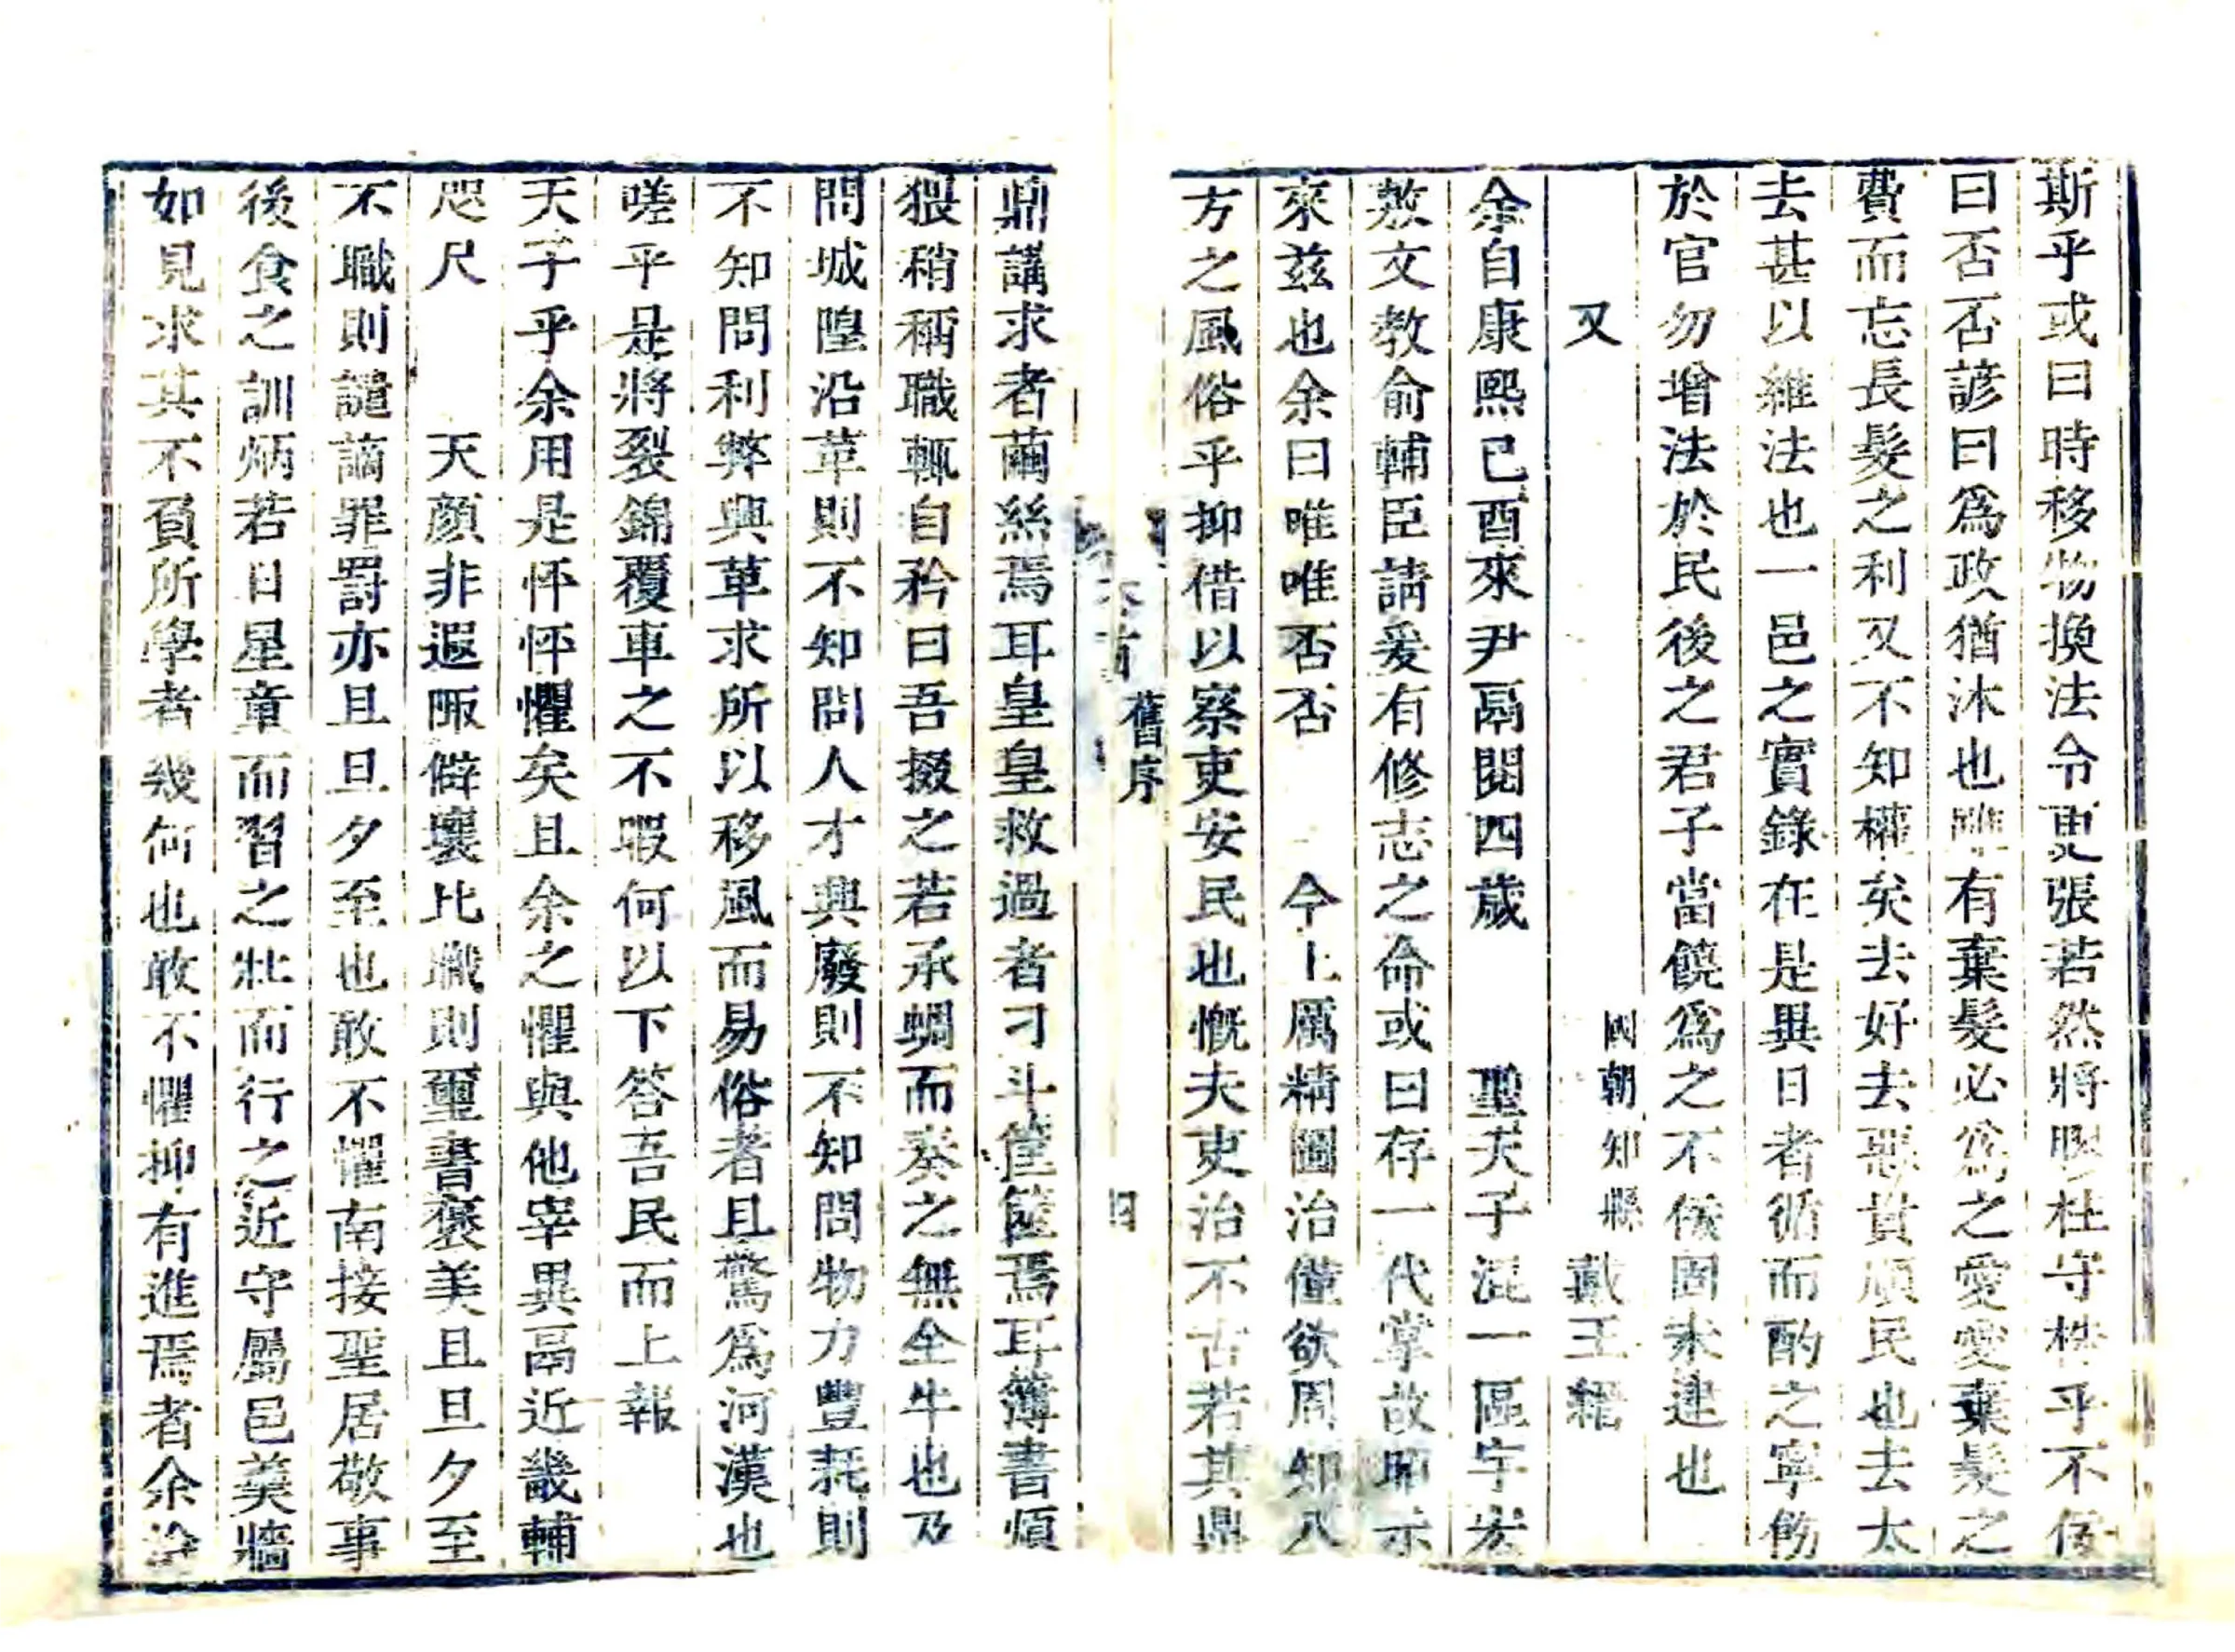 斯乎或曰時移物換法令更張若然將膠柱守株乎不佞
曰否否諺曰爲政猶沐也雖有棄髮必爲之愛愛棄髮之
費而忘長髮之利又不知權矣去好去惡貫順民也去太
去甚以維法也一邑之實錄在是異日者循而酌之寧飭
於官勿增法於民後之君子當饒爲之不佞固未逮也
又
國朝知縣戴王縉
余自康熙己酉來尹鬲閱四歲 聖天子混一區宇宏
敷文教俞輔臣請爰有修志之命或曰存一代掌故昭示
來茲也余曰唯唯否否 今上厲精圖治僅欲周知八
方之風俗乎抑借以察吏安民也慨夫吏治不古若其鼎
舊序
四
鼎講求者繭絲焉耳皇皇救過者刁斗筐篋焉耳簿書煩
猥稍稱職輒自矜曰吾掇之若承蜩而奏之無全牛也及
問城隍沿革則不知問人才興廢則不知問物力豐耗則
不知問利弊興革求所以移風而易俗者且驚爲河漢也
嗟乎是將裂錦覆車之不暇何以下答吾民而上報
天子乎余用是怦怦懼矣且余之懼與他宰異鬲近畿輔
咫尺 天顏非遐陬僻壤比職則璽書褒美且旦夕至
不職則譴謫罪罰亦且旦夕至也敢不懼南接聖居敬事
後食之訓炳若日星童而習之壯而行之近守屬邑羹牆
如見求其不負所學者幾何也敢不懼抑有進焉者余